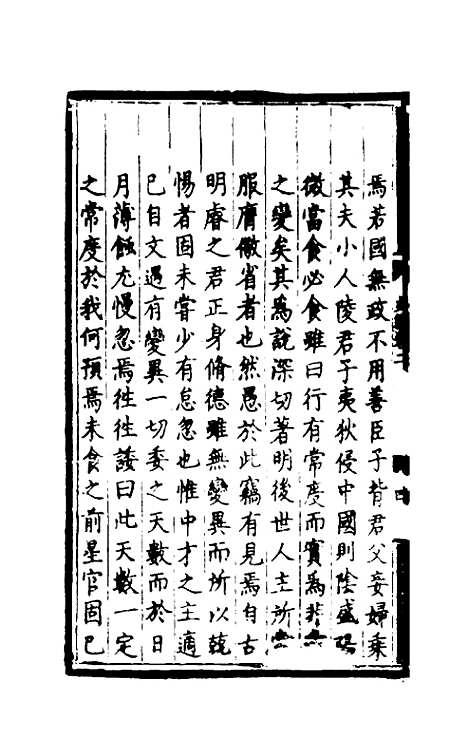 焉若國無政不用善臣子背君父妾婦乘
其夫小人陵君子夷狄侵中國則陰盛陽
微當食必食雖曰行有常度而實爲非常
之變矣其爲說深切著明後世人主所當
服膺儆省者也然愚於此竊有見焉自古
明睿之君正身脩德雖無變異而所以兢
惕者固未嘗少有怠忽也惟中才之主適
已自文遇有變異一切委之天數而於日
月薄蝕尤慢忽焉徃徃諉曰此天數一定
之常度於我何預焉未食之前星官固已